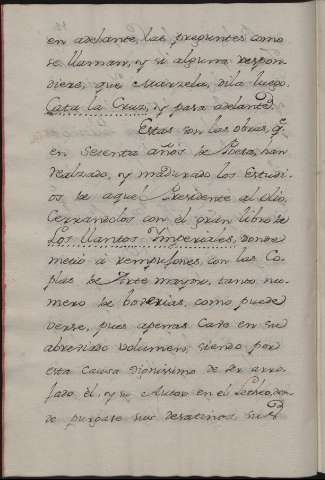 en adelante, las preguntes como
se llaman, y si alguna respon
diere, que Marzela, dila luego.
Cata la Cruz, y pasa adelante.
Estas son las obras, q.
en Setenta años de Poeta, han
realzado, y madurado los Estudi
os de aquel Presidente al olio.
Cerrandolos con el gran libro de
Los llantos Imperiales, donde
metió à rempujones, con las Co
plas de Arte mayor, tanto nu
mero de boverias, como puede
verse, pues apenas Cavo en su
abreviado volumen; siendo por
esta Causa dignissimo de ser arro
jado èl, y su Autor en el don
de purgase sus desatinos, su